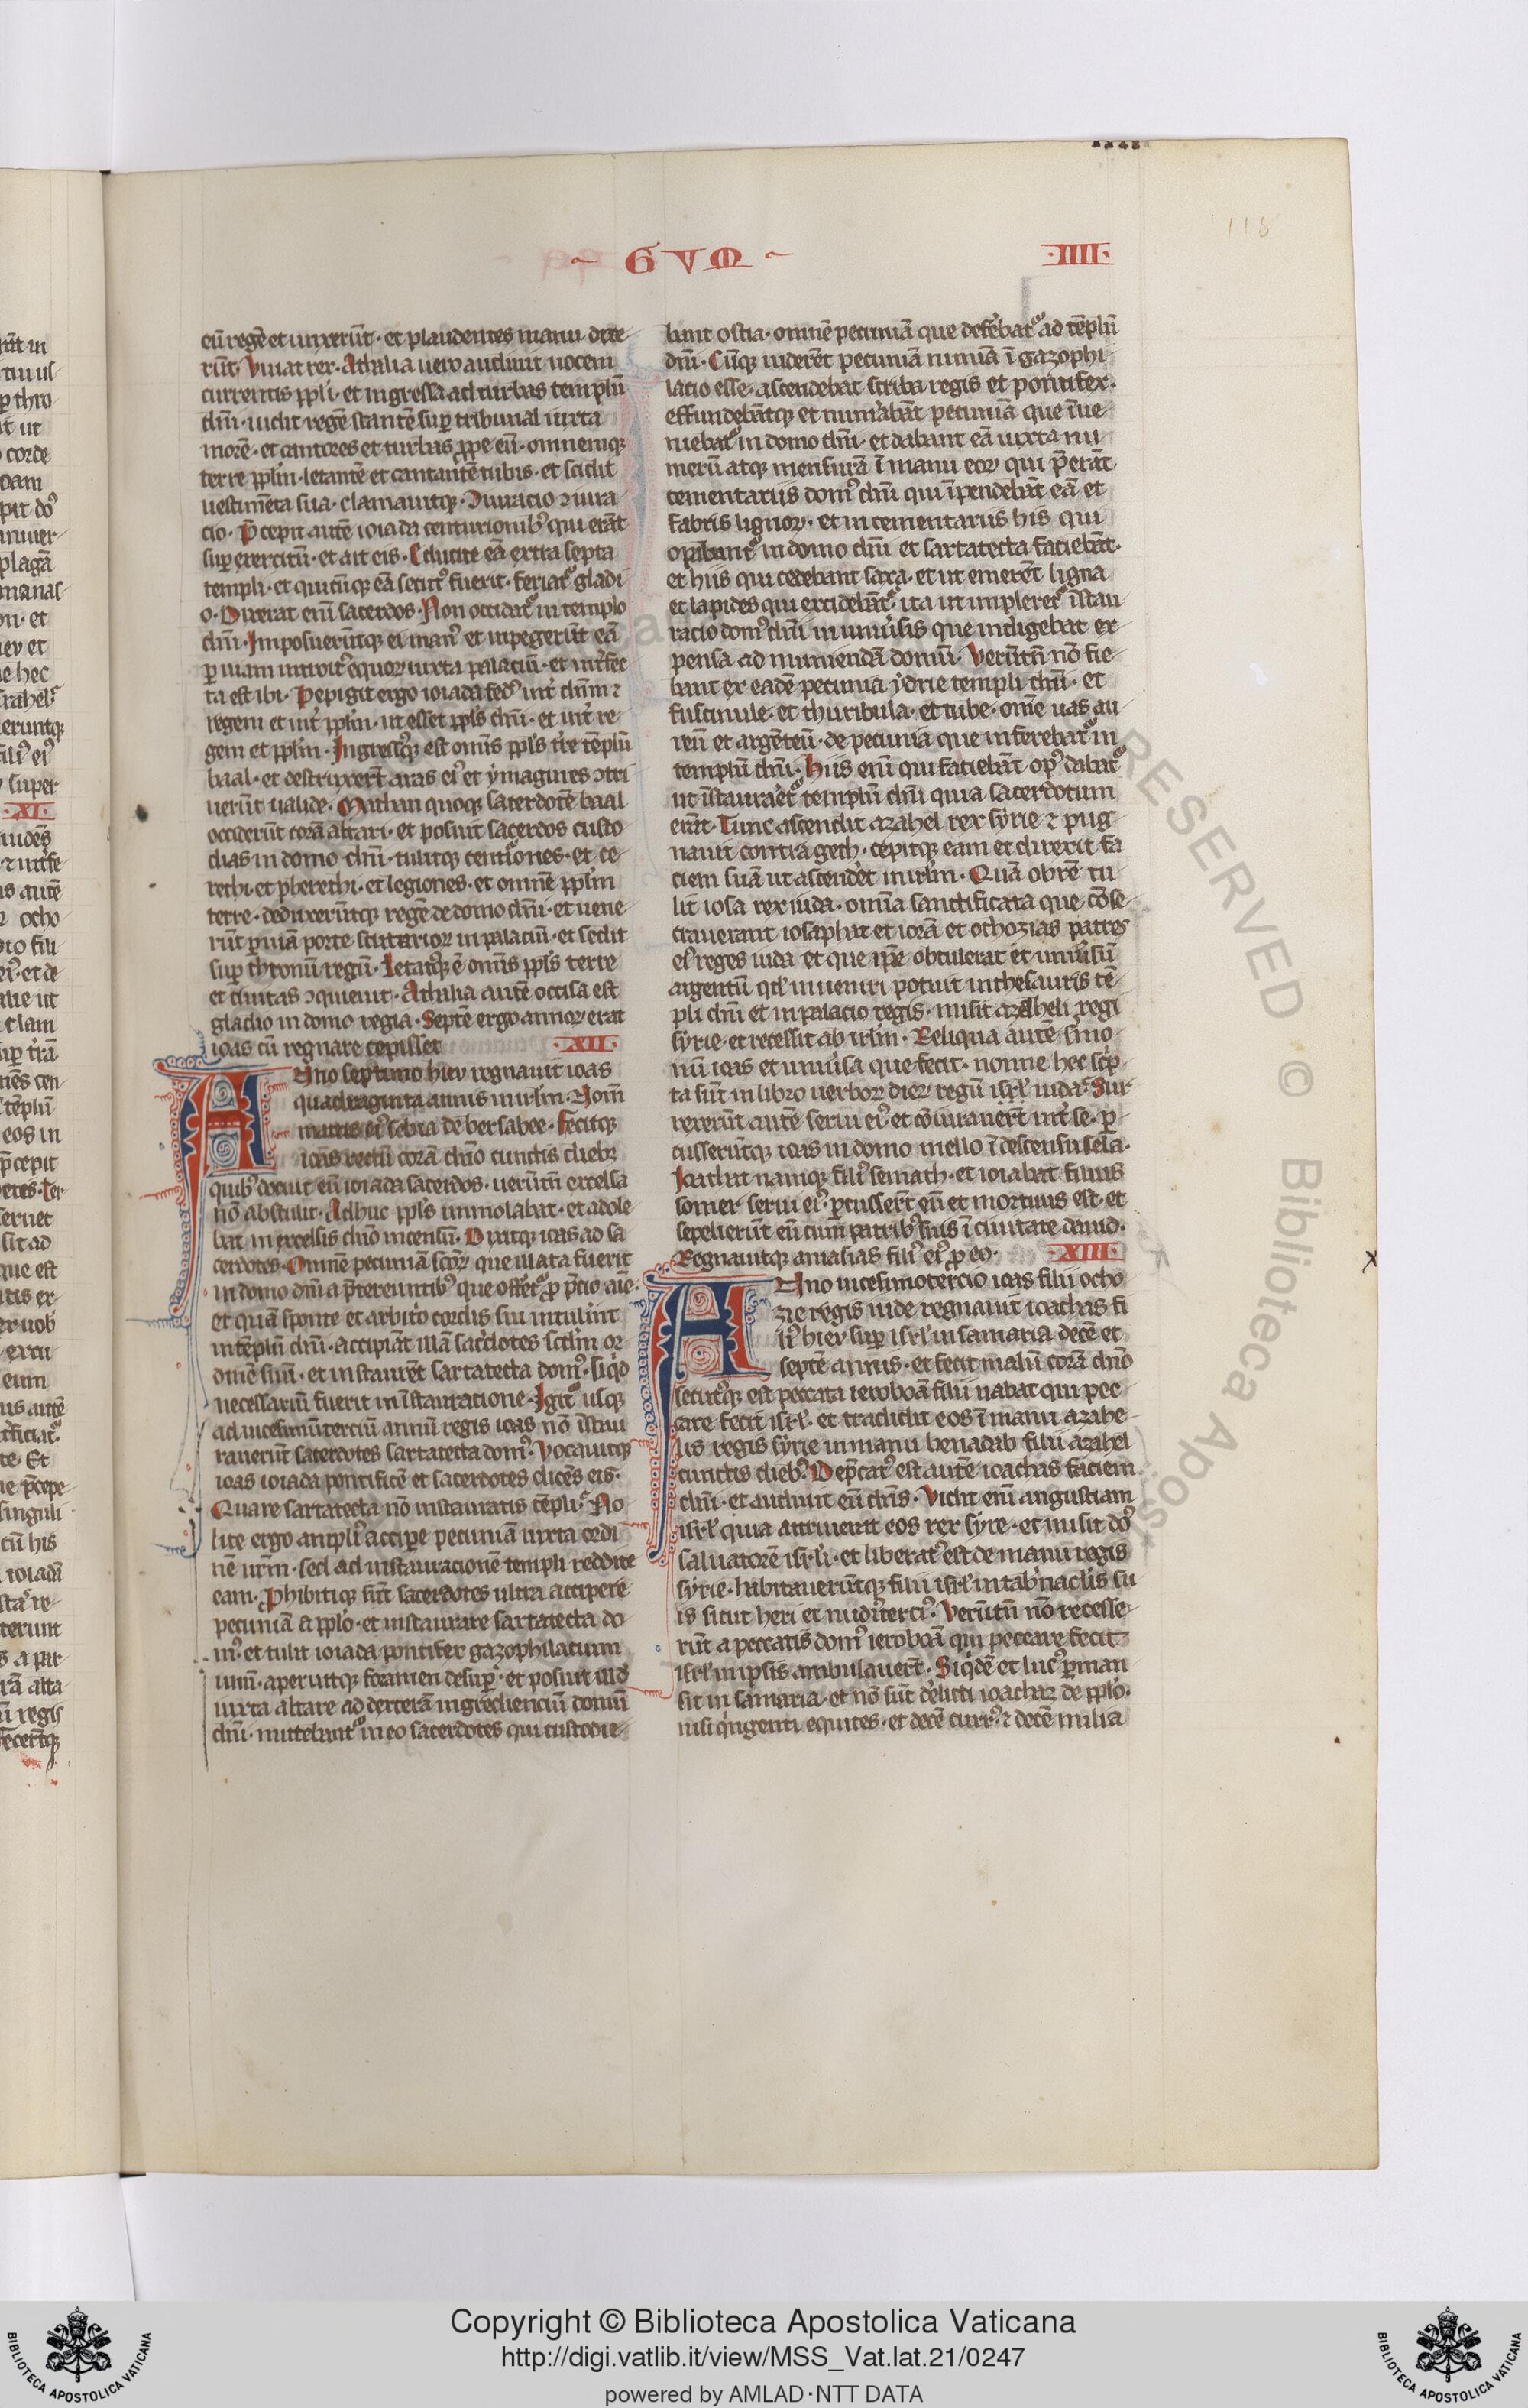 118
~ GVM ~ ·IIII·
eū regē et unxerūt · et plaudentes manu dixe
rūt · Viuat rex · Athalia uero audiuit uocem
currentis ppli · et ingressa ad turbas templū
dn̄i · uidit regē stantē sup tribunal iuxta
morē · et cantores et turbas ꝓpe eū · omnemqꝫ
terre pplm̄ · letantē et cantantē tubis · et scidit
uestim̄ta sua · clamauitqꝫ · Ↄiuracio ⁊ iura
cio · P̄cepit autē ioiada centurionibꝰ qui erāt
suꝑ exercitū · et ait eis · Educite eā extra septa
templi · et quicūqꝫ eā secutꝰ fuerit · feriatᷣ gladi
o · Dixerat eni̅ sacerdos · Non occidatᷣ in templo
dn̄i · Imposuerūtqꝫ ei manꝰ et inpegerūt eā
ꝑ uiam introitꝰ equoꝝ iuxta palaciū · et int̓fec
ta est ibi · Pepigit ergo ioiada fedꝰ int̓ dn̄m ⁊
regem et int̓ pplm̄ · ut esset ppls̄ dn̄i · et int̓ re
gem et pplm̄ · Ingressusqꝫ est om̄is ppls̄ t̓re tēplū
baal · et destruxer̄t aras eiꝰ et ymagines ↄtri
uerūt ualide · Mathan quoqꝫ sacerdotē baal
occiderūt corā altari · et posuit sacerdos custo
dias in domo dn̄i · tulitqꝫ centᷣiones · et ce
rethi · et pherethi · et legiones · et omnē pplm̄
terre · deduxerūtqꝫ regē de domo dn̄i · et uene
rūt ꝑ uiā porte scutarioꝝ in palaciū · et sedit
suꝑ thronū regū · Letatꝰqꝫ ē om̄is ppls̄ terre
et ciuitas ↄquieuit · Athalia autē occisa est
gladio in domo regia · Septē ergo annoꝝ erat
ioas cū regnare cepisset · XII ·
Anno septimo hieu regnauit ioas
quadraginta annis in irlm̄ · Nom̄
matris eiꝰ sebia de bersabee · Fecitqꝫ
ioas rectū corā dn̄o cunctis diebꝫ
quibꝰ docuit eū ioiada sacerdos · uerūtn̄ excelsa
nō abstulit · Adhuc ppls̄ immolabat · et adole
bat in excelsis dn̄o incensū · Dixitqꝫ ioas ad sa
cerdotes · Omnē pecuniā sc̄oꝝ que illata fuerit
in domo dn̄i a p̄tereuntibꝰ que offertᷣ ꝓ p̄cio aīe ·
et quā sponte et arbit̓o cordis sui intulint
in tēplū dn̄i · accipiāt illā sac̓dotes sc̄dm or
dinē suū · et instaurēt sartatecta domꝰ · siqͥd
necessariū fuerit in īstauratione · Igitᷣ usqꝫ
ad uicesimūterciū annū regis ioas nō īstau
rauerūt sacerdotes sartatecta domꝰ · Vocauitqꝫ
ioas ioiada pontificē et sacerdotes dicēs eis ·
Quare sartatecta nō instauratis tēpli · No
lite ergo ampliꝰ accipe pecuniā iuxta ordi
nē urm̄ · sed ad instauracionē templi reddite
eam · Prohibitiqꝫ sūt sacerdotes ultra accipere
pecuniā a pplo · et instaurare sartatecta do
mꝰ · et tulit ioiada pontifex gazophilacium
unū · aperuitqꝫ foramen desuꝑ · et posuit illd̄
iuxta altare ad dexterā ingredienciū domū
dn̄i · mittebantᷣ in eo sacerdotes qui custodie
bant ostia · omnē pecuniā que defebatᷣ ad tēplū
dn̄i · Cūqꝫ uiderēt pecuniā nimiā ī gazophi
lacio esse · ascendebat scriba regis et pontifex ·
effundebātqꝫ et num̓abāt pecuniā que īue
niebatᷣ in domo dn̄i · et dabant eā iuxta nu
merū atqꝫ mensurā ī manu eoꝝ qui p̄erāt
cementariis domꝰ dn̄i qui īpendebāt eā et
fabris lignoꝝ · et in cementariis his qui
opabantᷣ in domo dn̄i et sartatecta faciebāt ·
et hiis qui cedebant saxa · et ut emerēt ligna
et lapides qui excidebātᷣ · ita ut impleretᷣ īstau
racio domꝰ dn̄i in uniu̓sis que indigebat ex
pensa ad muniendā domū · Verūtn̄ nō fie
bant ex eadē pecunia ydrie templi dn̄i · et
fuscinule · et thuribula · et tube · om̄e uas au
reū et argēteū · de pecunia que inferebatᷣ in
templū dn̄i · Hiis eni̅ qui faciebāt opꝰ dabatᷣ
ut īstauraretᷣ templū dn̄i quia sacerdotum
erāt · Tunc ascendit azahel rex syrie ⁊ pug
nauit contra geth · cepitqꝫ eam et direxit fa
ciem suā ut ascend̓et in irlm̄ · Quā obrē tu
lit ioas rex iuda · omnia sanctificata que cōse
crauerant iosaphat et iorā et ochozias patres
eiꝰ reges iuda et que ip̄e obtulerat et uniu̓sū
argentū qd̄ inueniri potuit in thesauris tē
pli dn̄i et in palacio regis · misit azaheli regi
syrie · et recessit ab irlm̄ · Reliqua autē s̓mo
nū ioas et uniu̓sa que fecit · nonne hec scͥp
ta sūt in libro uerboꝝ dieꝝ regū isrl̄ iuda · Sur
rexerūt autē serui eiꝰ et cōiurauer̄t int̓ se · ꝑ
cusserūtqꝫ ioas in domo mello ī descensu sela ·
Iozachat namqꝫ filiꝰ semath · et iozabat filius
somer serui eiꝰ · ꝑcusser̄t eū et mortuus est · et
sepelierūt eū cum patribꝰ suis ī ciuitate dauid ·
Regnauitqꝫ amasias filiꝰ eiꝰ ꝓ eo · XIII ·
Anno uicesimotercio ioas filii ocho
zie regis iude regnauit ioachas fi
liꝰ hieu suꝑ isrl̄ in samaria decē et
septē annis · et fecit malū corā dn̄o
secutꝰqꝫ est peccata ieroboā filii nabat qui pec
care fecit isrl̄ · et tradidit eos ī manu azahe
lis regis syrie in manu benadab filii azahel
cunctis diebꝰ · Dep̄catꝰ est autē ioachas faciem
dn̄i · et audiuit eū dn̄s · Vidit eni̅ angustiam
isrl̄ quia attriuerit eos rex syre · et misit dn̄s
saluatorē isrl̄i · et liberatꝰ est de manu regis
syrie · habitauerūtqꝫ filii isrl̄ in tab̓naclis su
is sicut heri et nudiꝰterciꝰ · Verūtn̄ nō recesse
rūt a peccatis domꝰ ieroboā qui peccare fecit
isrl̄ in ip̄sis ambulauer̄t · Siqͥdē et lucꝰ ꝑman
sit in samaria · et nō sūt d̓elicti ioachaz de pplo ·
nisi qͥngenti equites · et decē currꝰ ⁊ decē milia
RESERVED © Biblioteca Apost
Copyright © Biblioteca Apostolica Vaticana
http://digi.vatlib.it/view/MSS_Vat.lat.21/0247
powered by AMLAD·NTT DATA
BIBLIOTECA APOSTOLICA VATICANA
BIBLIOTECA APOSTOLICA VATICANA